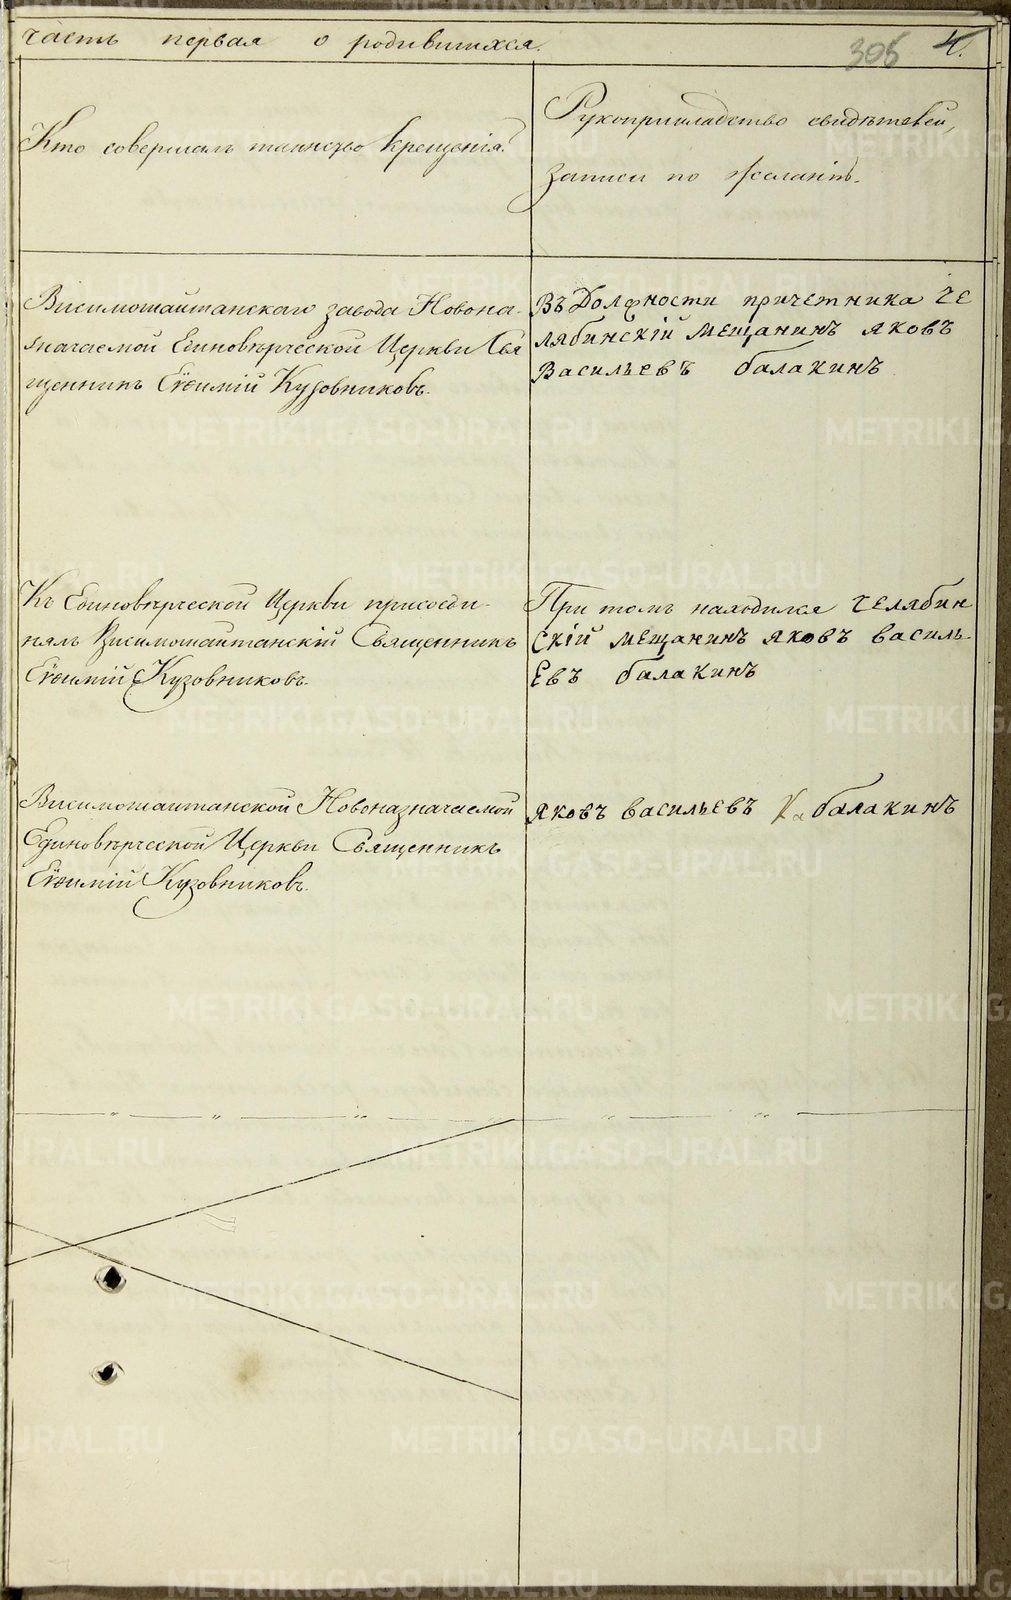 часть первая о родившихся.
305 4.
Кто совершалъ таинство крещенія.
Рукоприкладство свидѣтелей,
записи по желанію.
Висимошайтанскаго завода Новона-
значаемой Единовѣрческой Церкви Свя
щенникъ Евѳимій Кузовниковъ.
Въ Должности причетника Че
лябинскій мещанинъ яковъ
Васильевъ балакинъ
Къ Единовѣрческой Церкви присоеди-
нялъ Висимошайтанскій Священникъ
Евѳимій Кузовниковъ.
При томъ находился челябин
скій мещанинъ яковъ василь-
евъ балакинъ
Висимошаитанской Новоназначаемой
Единовѣрческой Церкви Священникъ
Евѳимій Кузовниковъ.
яковъ васильевъ балакинъ
METRIKI.GASO-URAL.RU